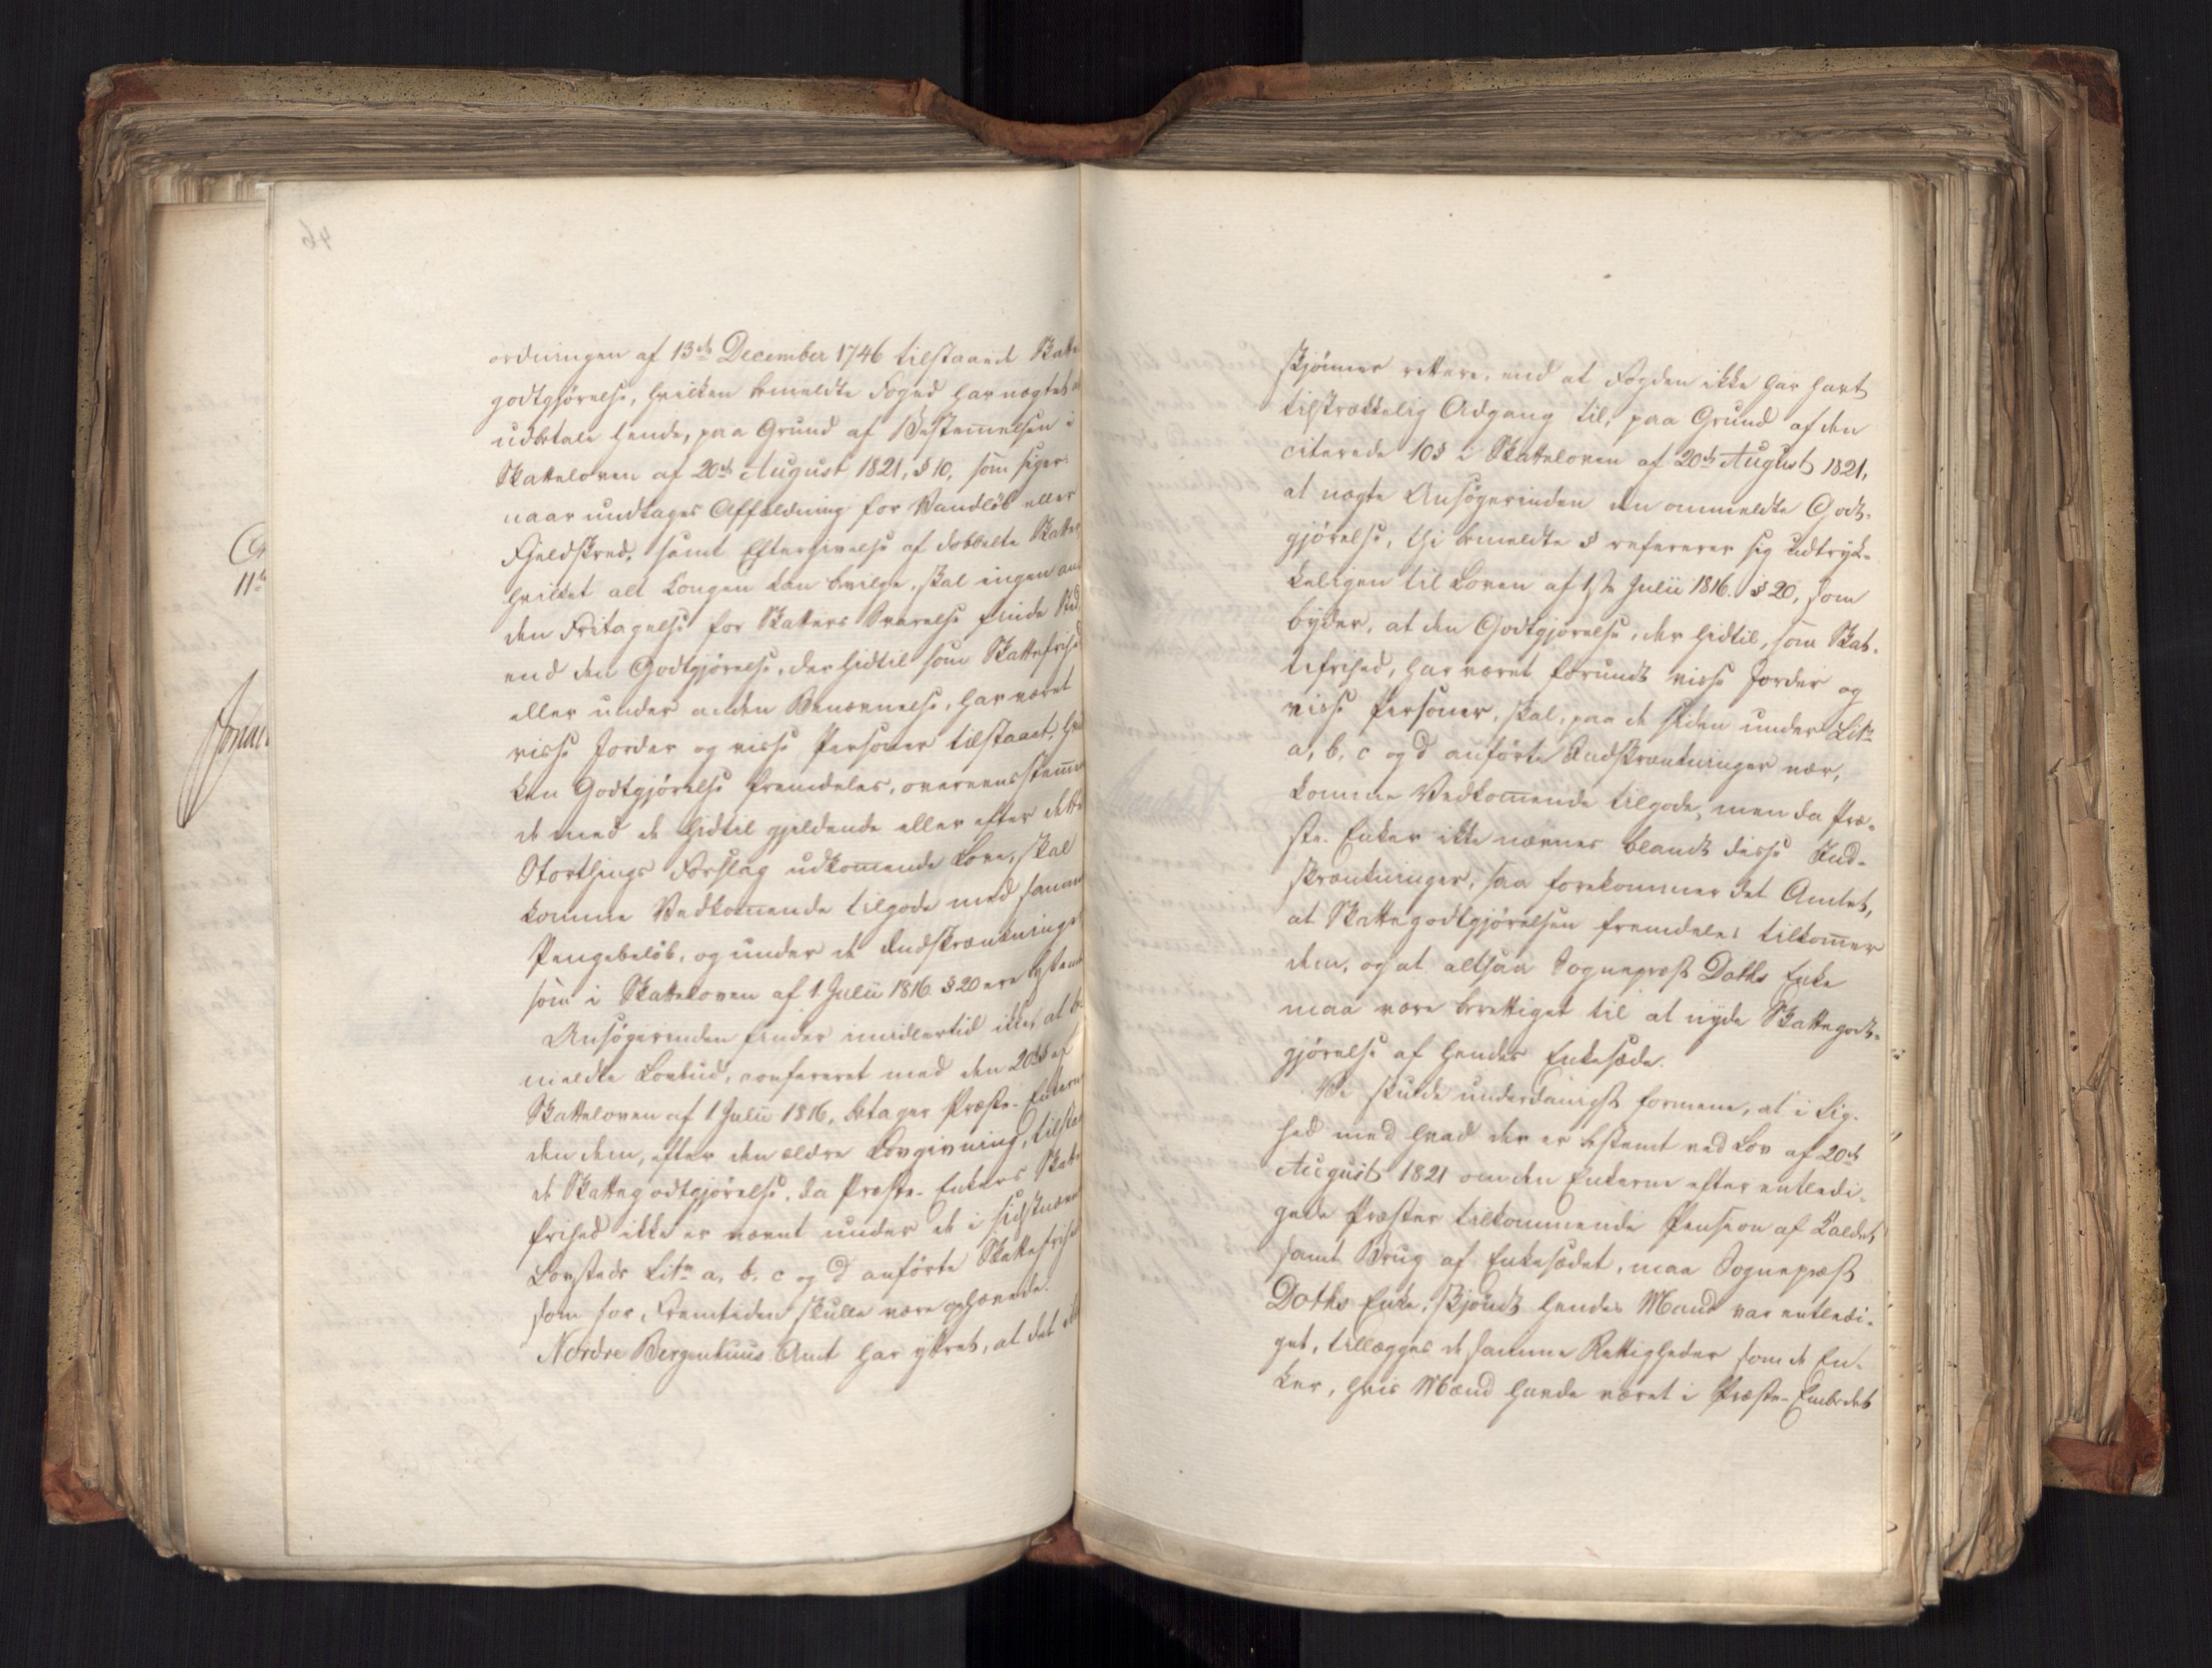 ordningen af 13de December 1746 tilstaaede Skatte
godtgjørelse, hvilken bemeldte Foged har nægtet at
udbetale hende, paa Grund af Bestemmelsen i
Skatteloven af 20de August 1821, § 10, som siger:
naar undtages Affældning for Vandløb eller
Fjeldskred, samt Eftergivelse af dobbelte Skatter
hvilket alt Kongen kan bevilge, skal ingen an
den Fritagelse for Skatters Svarelse finde Sted,
end den Godtgjørelse, der hidtil som Skattefrihed
eller under anden Benævnelse, har været
visse Jorder og visse Personer tilstaaet, hvil
ken Godtgjørelse fremdeles, overeensstemmen
de med de hidtil gjeldende eller efter dette
Storthings Forslag udkommende Love, skal
komme Vedkommende tilgode med samme
Pengebeløb, og under de Indskrænkninger
som i Skatteloven af 1 Julii 1816 § 20 ere bestemte
Ansøgerinden finder imidlertid ikke, at be
meldte Lovbud, confereret med den 20de § af
Skatteloven af 1 Julii 1816, betager Præste-Enkerne
den dem, efter den ældre Lovgivning, tilstaae
de Skattegodtgjørelse, da Præste-Enkers Skatte
frihed ikke er nævnt under de i sidstnævnte
Lovsteds Litr a, b, c og d anførte Skattefrihed
som for Fremtiden skulle være ophævede.
Nordre Bergenhuus Amt har yttret, at det ikke
46
skjønner rettere, end at Fogden ikke har havt
tilstrækkelig Adgang til, paa Grund af den
citerede 10 § i Skatteloven af 20de August 1821,
at nægte Ansøgerinden den ommeldte Godt-
gjørelse, thi bemeldte § refererer sig udtryk-
keligen til Loven af 1ste Julii 1816. § 20, som
byder, at den Godtgjørelse, der hidtil, som Skat-
tefrihed, har været forundt visse Jorder og
visse Personer, skal, paa de siden under Litr
a, b, c og d anførte Indskrænkninger nær,
komme Vedkommende tilgode, men da Præ-
ste-Enker ikke nævnes blandt disse Ind-
skrænkninger, saa forekommer det Amtet,
at Skattegodtgjørelsen fremdeles tilkommer
dem, og at altsaa Sognepræst Daths Enke
maa være berettiget til at nyde Skattegodt-
gjørelse af hendes Enkesæde.
Vi skulde underdanigst formene, at i Lig-
hed med hvad der er bestemt ved Lov af 20de
August 1821 om den Enkerne efter entledi-
gede Præster tilkommende Pension af Kaldet,
samt Brug af Enkesædet, maa Sognepræst
Daths Enke, skjøndt hendes Mand var entledi-
get, tillægges de samme Rettigheder som de En-
ker, hvis Mænd havde været i Præste-Embedet